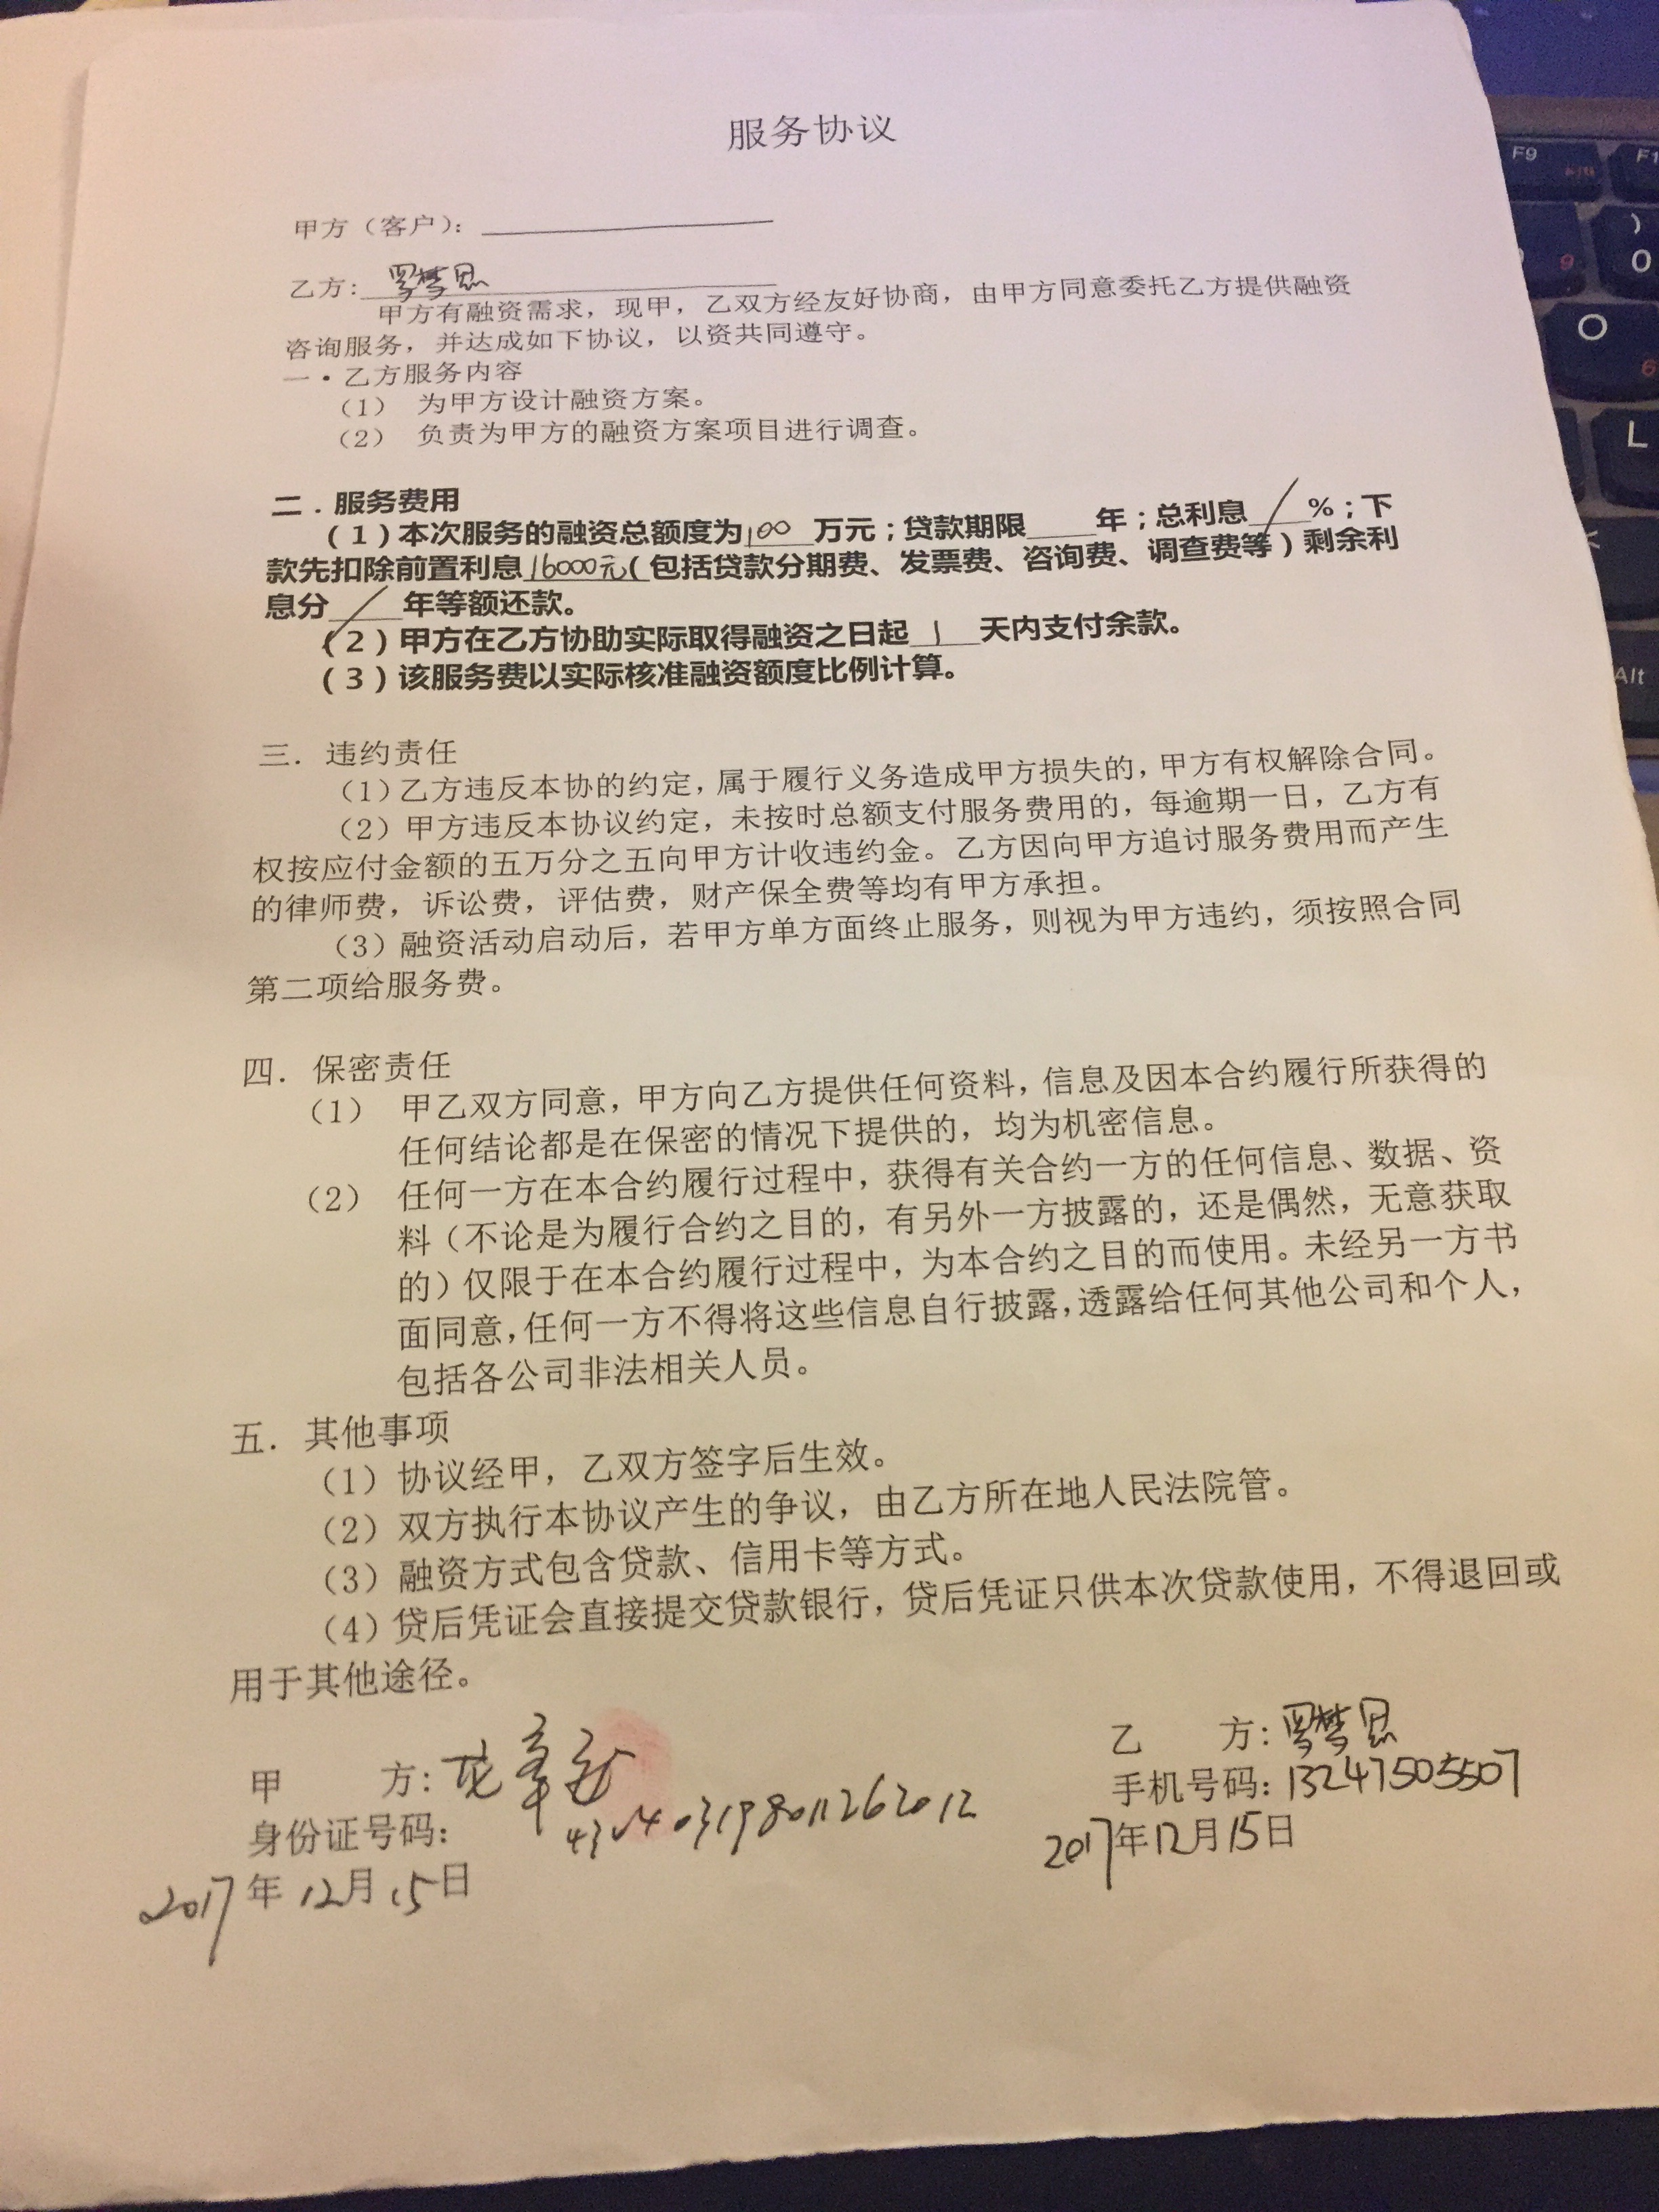 服务协议
甲方（客户）：
乙方：罗梦思
甲方有融资需求，现甲，乙双方经友好协商，由甲方同意委托乙方提供融资
咨询服务，并达成如下协议，以资共同遵守。
一·乙方服务内容
（1） 为甲方设计融资方案。
（2） 负责为甲方的融资方案项目进行调查。
二．服务费用
（1）本次服务的融资总额度为100万元；贷款期限____年；总利息／%；下
款先扣除前置利息16000元（包括贷款分期费、发票费、咨询费、调查费等）剩余利
息分／年等额还款。
（2）甲方在乙方协助实际取得融资之日起1天内支付余款。
（3）该服务费以实际核准融资额度比例计算。
三．违约责任
（1）乙方违反本协的约定，属于履行义务造成甲方损失的，甲方有权解除合同。
（2）甲方违反本协议约定，未按时总额支付服务费用的，每逾期一日，乙方有
权按应付金额的五万分之五向甲方计收违约金。乙方因向甲方追讨服务费用而产生
的律师费，诉讼费，评估费，财产保全费等均有甲方承担。
（3）融资活动启动后，若甲方单方面终止服务，则视为甲方违约，须按照合同
第二项给服务费。
四．保密责任
（1） 甲乙双方同意，甲方向乙方提供任何资料，信息及因本合约履行所获得的
任何结论都是在保密的情况下提供的，均为机密信息。
（2） 任何一方在本合约履行过程中，获得有关合约一方的任何信息、数据、资
料（不论是为履行合约之目的，有另外一方披露的，还是偶然，无意获取
的）仅限于在本合约履行过程中，为本合约之目的而使用。未经另一方书
面同意，任何一方不得将这些信息自行披露，透露给任何其他公司和个人，
包括各公司非法相关人员。
五．其他事项
（1）协议经甲，乙双方签字后生效。
（2）双方执行本协议产生的争议，由乙方所在地人民法院管。
（3）融资方式包含贷款、信用卡等方式。
（4）贷后凭证会直接提交贷款银行，贷后凭证只供本次贷款使用，不得退回或
用于其他途径。
甲 方：
身份证号码：
2017年12月15日
乙 方：罗梦思
手机号码：13247505507
2017年12月15日